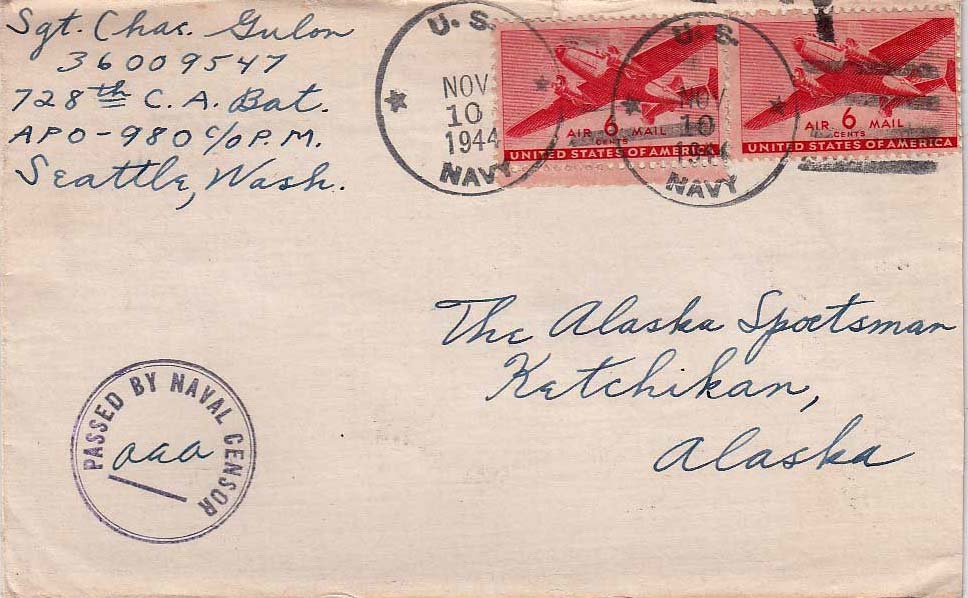 Sgt. Chas. Gulon
36009547
728th C. A. Bat.
APO - 980 c/o P. M.
Seattle, Wash.
U. S.
NOV
10
1944
NAVY
U. S.
NOV
10
1944
NAVY
AIR 6 MAIL
CENTS
UNITED STATES OF AMERICA
AIR 6 MAIL
CENTS
UNITED STATES OF AMERICA
The Alaska Sportsman
Ketchikan,
Alaska
PASSED BY NAVAL CENSOR